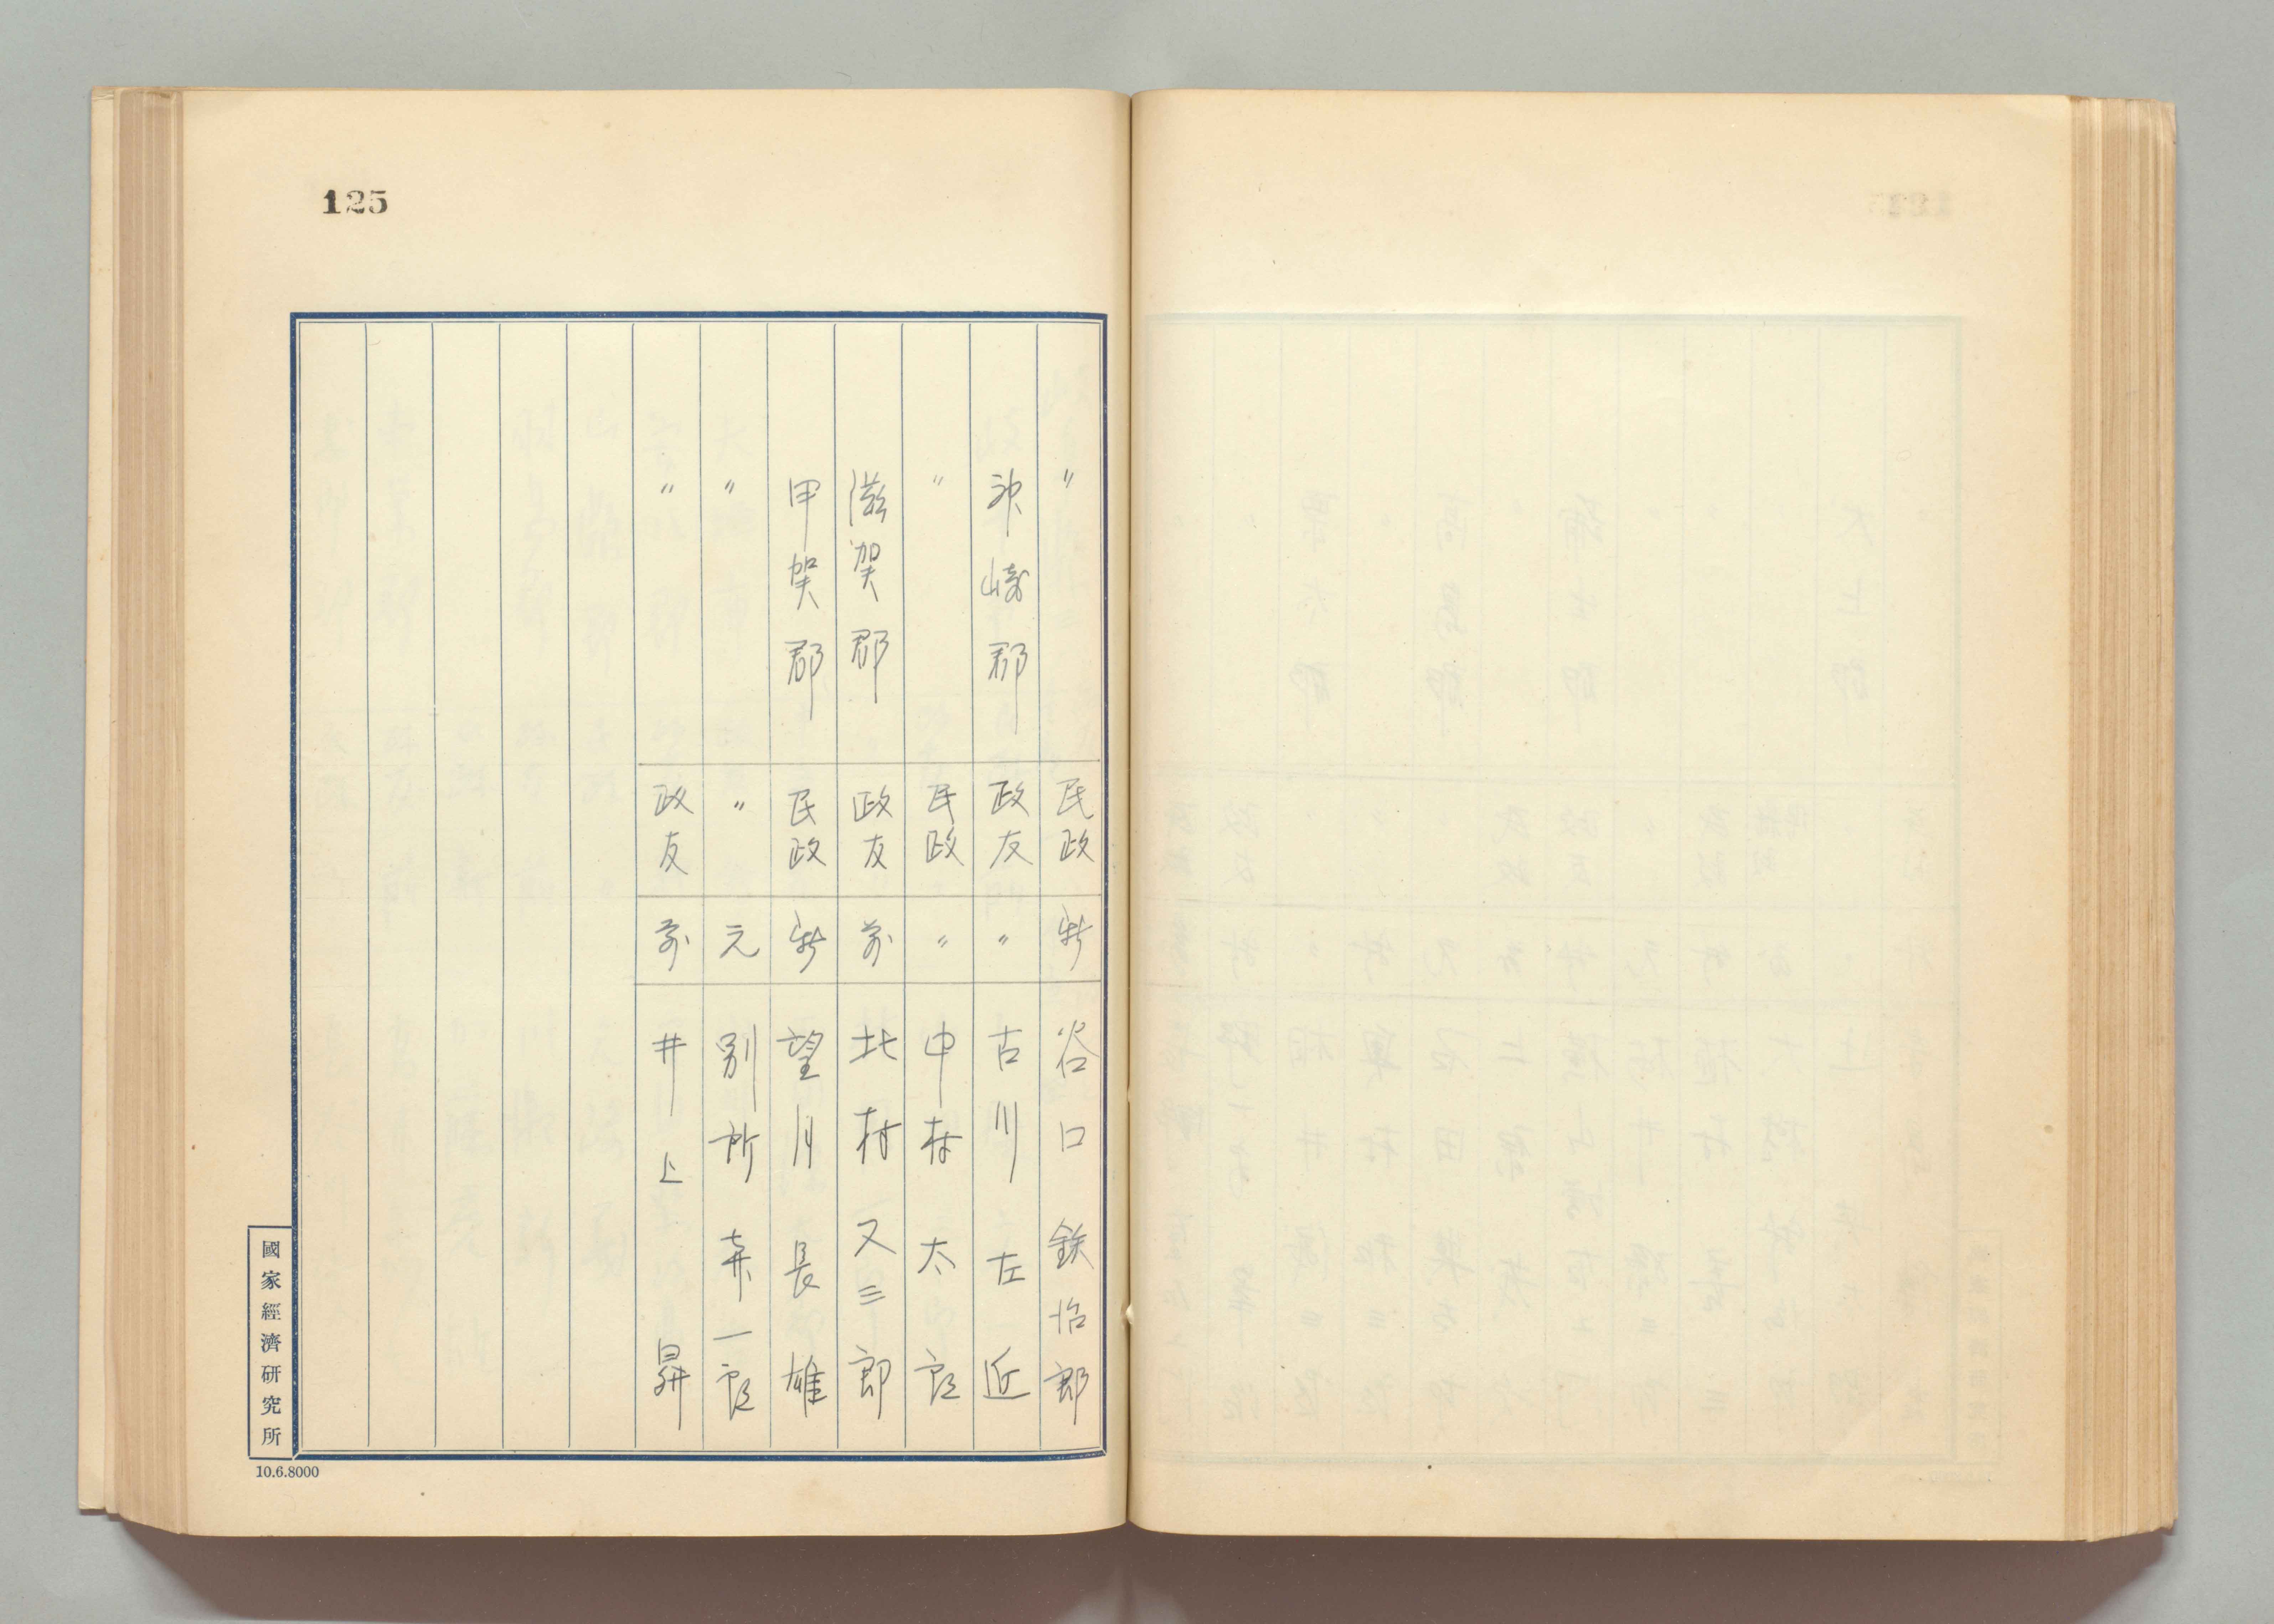 125
〃 民政 新 谷口鉄治郎
神崎郡 政友 〃 古川左近
〃 民政 〃 中村太郎
滋賀郡 政友 前 北村又三郎
甲賀郡 民政 新 望月長雄
〃 〃 元 別所喜一郎
〃 政友 前 井上昇
國家經濟研究所
10.6.8000